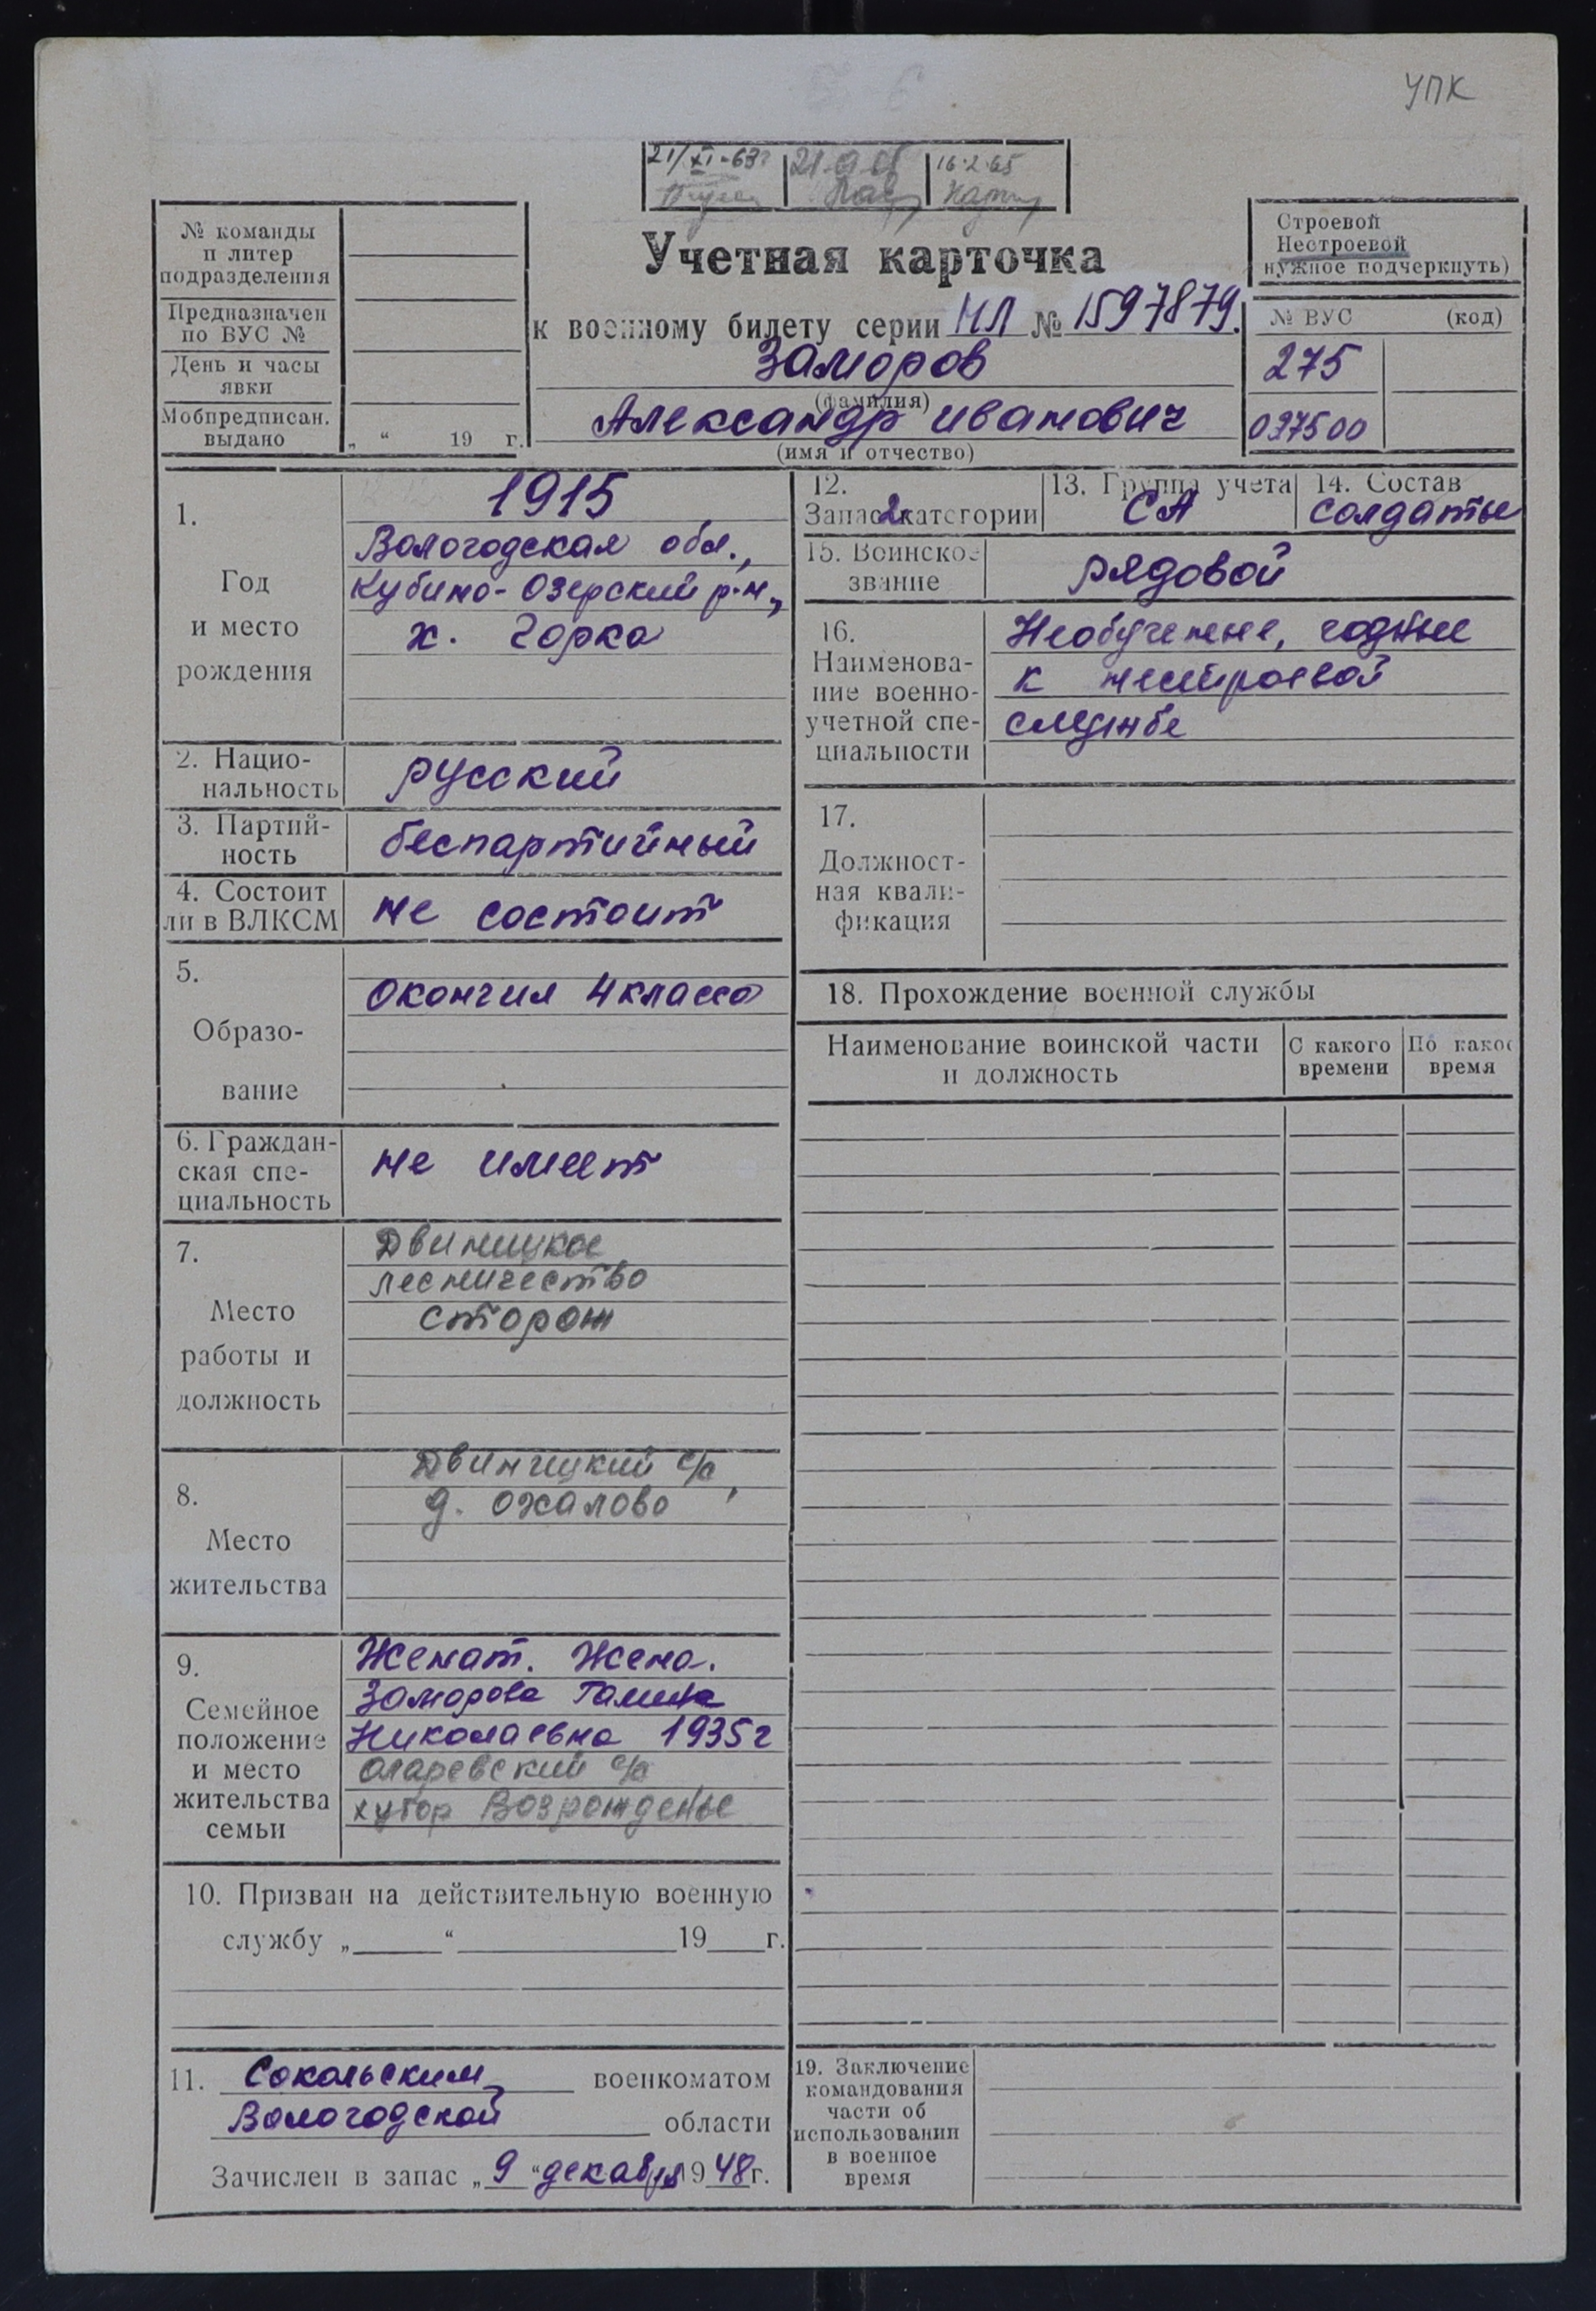 УПК
21/XI-63г
16.2.65
№ команды
и литер
подразделения
Предназначен
по ВУС №
День и часы
явки
Мобпредписан.
выдано
„ “ 19 г.
Учетная карточка
к военному билету серии НЛ № 1597879.
Заморов
(фамилия)
Александр Иванович
(имя и отчество)
Строевой
Нестроевой
нужное подчеркнуть)
№ ВУС (код)
275
097500
1.
Год
и место
рождения
1915
Вологодская обл.,
Кубино-Озерский р-н,
х. Горка
2. Нацио-
нальность
русский
3. Партий-
ность
беспартийный
4. Состоит
ли в ВЛКСМ
не состоит
5.
Образо-
вание
Окончил 4 класса
6. Граждан-
ская спе-
циальность
не имеет
7.
Место
работы и
должность
Двиницкое
лесничество
сторож
8.
Место
жительства
Двиницкий с/с,
д. Ожалово
9.
Семейное
положение
и место
жительства
семьи
Женат. Жена.
Заморова Галина
Николаевна 1935г
Оларевский с/с
хутор Возрожденье
10. Призван на действительную военную
службу „ “ 19 г.
11. Сокольским военкоматом
Вологодской области
Зачислен в запас „9“ декабря 1948г.
12.
Запас 2 категории
13. Группа учета
СА
14. Состав
солдаты
15. Воинское
звание
рядовой
16.
Наименова-
ние военно-
учетной спе-
циальности
Необученные, годные
к нестроевой
службе
17.
Должност-
ная квали-
фикация
18. Прохождение военной службы
Наименование воинской части
и должность
С какого
времени
По какое
время
19. Заключение
командования
части об
использовании
в военное
время